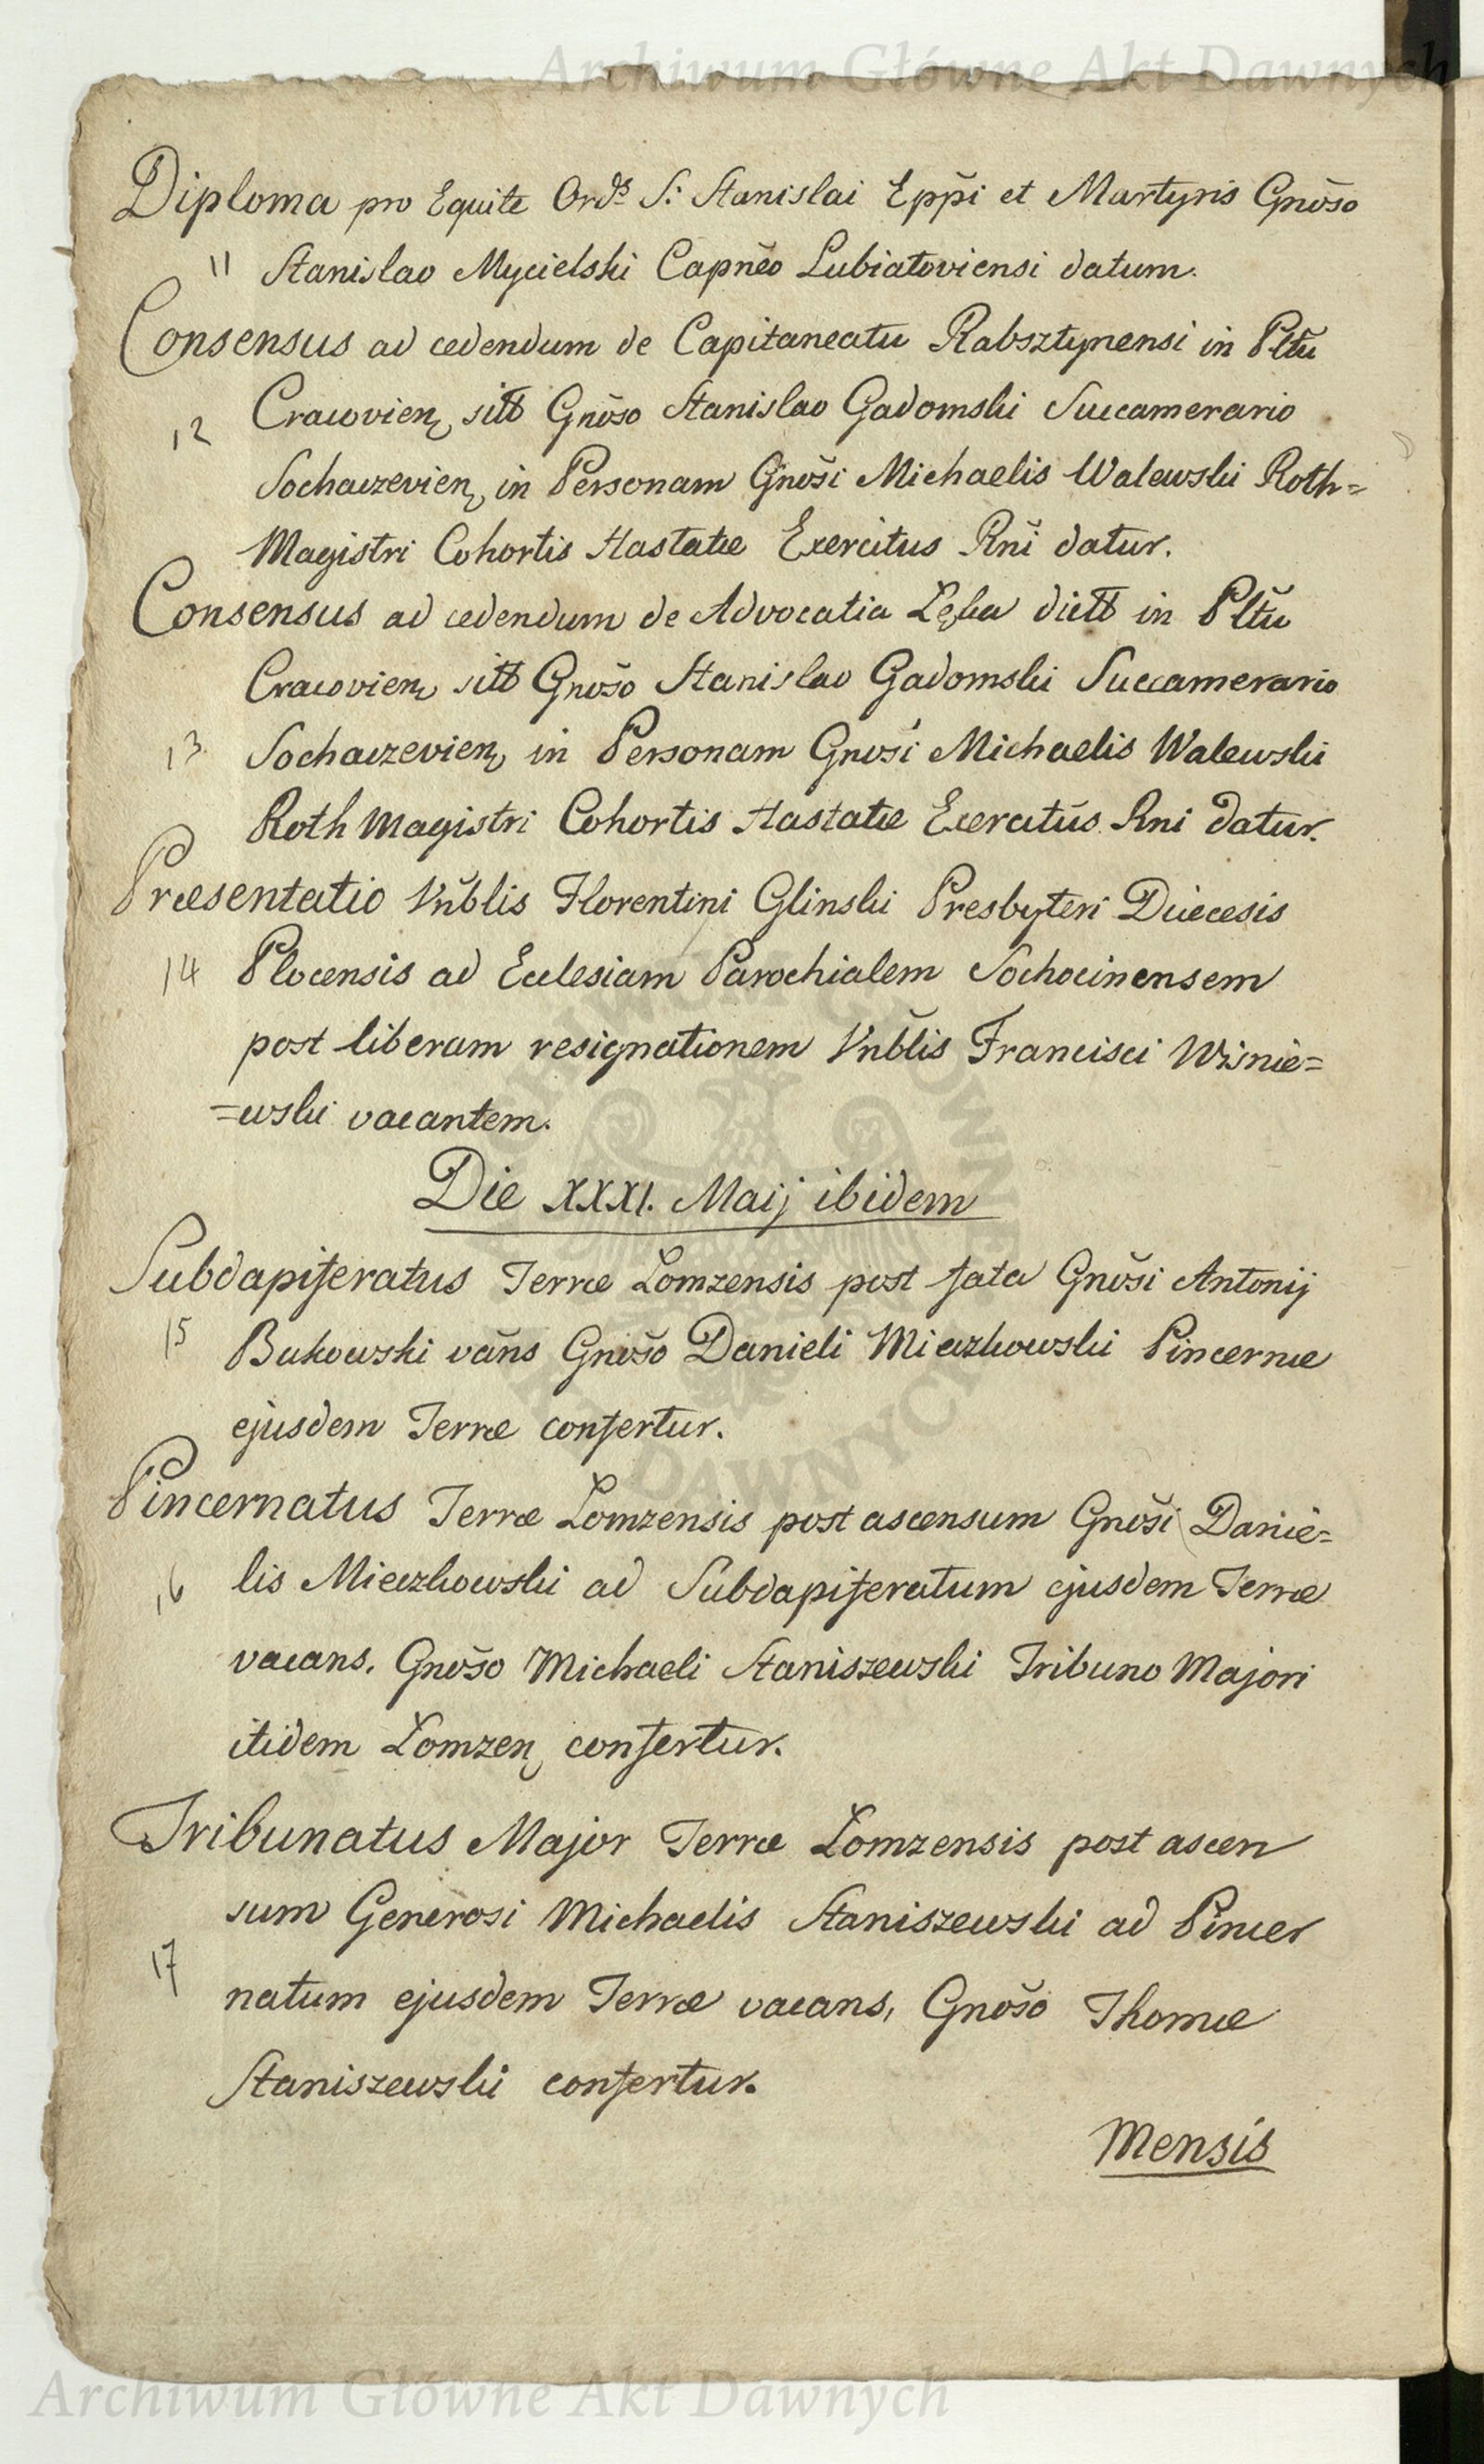 Archiwum Główne Akt Dawnych
Diploma pro Equite Ord̃s S: Stanislai Epp̃i et Martyris Gnõso
11 Stanislao Mycielski Capnẽo Lubiatoviensi datum.
Consensus ad cedendum de Capitaneatu Rabsztynensi in Pltũ
12 Cracovien, sitt Gnõso Stanislao Gadomski Succamerario
Sochaczevien, in Personam Gnõsi Michaelis Walewski Roth=
Magistri Cohortis Hastatæ Exercitus Rñi datur.
Consensus ad cedendum de Advocatia Łęka dictt in Pltũ
Cracovien, sitt Gnõso Stanislao Gadomski Succamerario
13 Sochaczevien, in Personam Gnosi Michaelis Walewski
Roth Magistri Cohortis Hastatæ Exercitus Rni datur.
Præsentatio Vnb̃lis Florentini Glinski Presbyteri Diæcesis
14 Plocensis ad Ecclesiam Parochialem Sochocinensem
post liberam resignationem Vnb̃lis Francisci Wisnie=
=wski vacantem.
Die XXXI. Maij ibidem
Subdapiferatus Terræ Lomzensis post fata Gnõsi Antonij
15 Bukowski vañs Gnõso Danieli Mieczkowski Pincernæ
ejusdem Terræ confertur.
Pincernatus Terræ Lomzensis post ascensum Gnõsi Danie=
16 lis Mieczkowski ad Subdapiferatum ejusdem Terræ
vacans. Gnõso Michaeli Staniszewski Tribuno Majori
itidem Lomzen, confertur.
Tribunatus Major Terræ Lomzensis post ascen
sum Generosi Michaelis Staniszewski ad Pincer
17 natum ejusdem Terræ vacans, Gnõso Thomæ
Staniszewski confertur.
Mensis
Archiwum Główne Akt Dawnych